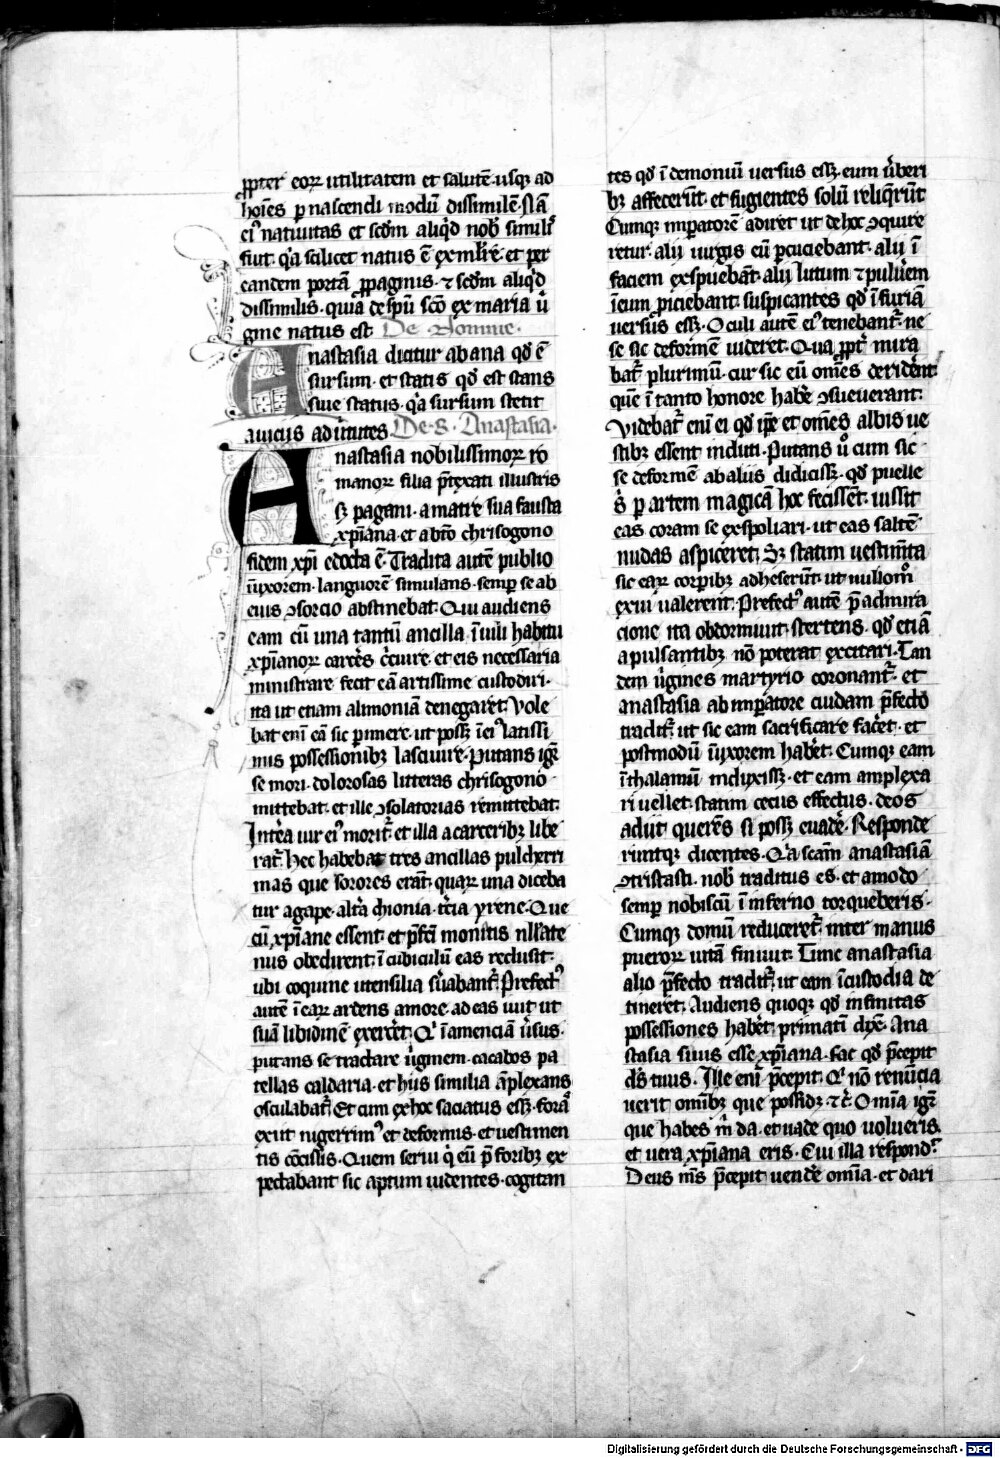 ꝓpter eoꝝ utilitatem et salutē. usqꝫ ad
hoīes ꝑ nascendi modū dissimilē. Nā
eiꝰ natiuitas et scd̄m aliq̇d nob̄ similis
fiut. q̇a scilicet natus ē ex mł're. et per
eandem portā ꝓpaginis. ⁊ scd̄m aliq̇d
dissimilis. quia de spū scō ex maria ỽ
gine natus est. De Nomine.
Anastasia dicitur ab ana qd̄ ē
sursum. et stasis qd̄ est stans
siue status. q̇a sursum stetit
a uiciis ad v̄tutes. De S. Anastasia.
Anastasia nobilissimoꝝ ro
manoꝝ filia p̄texati illustris
sꝫ pagani. a matre sua fausta
xp̄iana. et a bt̄o chrisogono
fidem xp̄i edocta ē. Tradita autē publio
ī uxorem. languorē simulans. semꝑ se ab
eius ꝯsorcio abstinebat. Qui audiens
eam cū una tantū ancilla. ī uili habitu
xp̄ianoꝝ carc̄es c̄cuire. et eis necessaria
ministrare fecit eā artissime custodiri.
ita ut etiam alimoniam denegaret. Vole
bat enī eā sic ꝑimere. ut possꝫ ī eiꝰ latissi
mis possessionibꝫ lasciuire. Putans igr̄
se mori. dolorosas litteras chrisogono
mittebat. et ille ꝯsolatorias remittebat.
Intēa uir eiꝰ morit᷑. et illa a carceribꝫ libe
rat᷑. Hec habebat tres ancillas pulcherri
mas que sorores erāt. quaꝝ una diceba
tur agape. alt̄a chionia. tc̄ia yrene. Que
cū xp̄iane essent. et p̄fc̄i monitis nllāte
nus obedirent. ī cubiculū eas reclusit.
ubi coquine utensilia s̄uabant᷑. Prefectꝰ
autē ī eaꝝ ardens amore. ad eas iuit ut
suā libidinē exerc̄et. Qͥ ī amenciam ūsus.
putans se tractare ūgines. cacabos pa
tellas caldaria. et hiis similia āplexans
osculabat᷑. Et cum ex hoc saciatus essꝫ. foras
exiit nigerrimꝰ et deformis. et uestimen
tis cōcissis. Quem serui q̇ eū p̄ foribꝫ ex
pectabant sic aptum uidentes. cogitan
tes qd̄ ī demoniū uersus essꝫ. eum v̄beri
bꝫ affecerūt. et fugientes solū reliq̄rūt.
Cumqꝫ imꝑatorē adiret ut de hoc ꝯquire
retur. alij uirgis eū ꝑcuciebant. alij ī
faciem exspuebāt. alij lutum ⁊ puluēm
ī eum ꝓiciebant. suspicantes qd̄ ī furiā
uersus essꝫ. Oculi autē eiꝰ tenebant᷑. ne
se sic deformē uideret. Qua ꝓpt᷑ mira
bat᷑ plurimū. cur sic eū om̄es deridēnt.
quē ī tanto honore habēe ꝯsueuerant.
Videbat᷑ enī ei qd̄ ip̄e et om̄es albis ue
stibꝫ essent induti. Putans uͦ cum sic
se deformē ab aliis didicissꝫ. qd̄ puelle
s̄ ꝑ artem magicā hoc fecissēt. iussit
eas coram se exspoliari. ut eas saltē
nudas aspiceret. Sꝫ statim uestim̄ta
sic eaꝝ corꝑibꝫ adheserūt. ut nullomͦ
exui ualerent. Prefectꝰ autē p̄ admira
cione ita obdormiuit stertens. qd̄ etiā
a pulsantibꝫ nō poterat excitari. Tan
dem v̄gines martyrio coronant᷑. et
anastasia ab imꝑatore cuidam p̄fecto
tradit᷑. ut sic eam sacrificare fac̄et. et
postmodū ī uxorem hab̄et. Cumqꝫ eam
ī thalamū induxissꝫ. et eam amplexa
ri uellet. statim cecus effectus. deos
adiit querēs si possꝫ euadē. Responde
runtqꝫ dicentes. Q̇a scām anastasiā
ꝯtristasti. nob̄ traditus es. et amodo
semꝑ nobiscū ī inferno torqueberis.
Cumqꝫ domū reduceret᷑. inter manus
pueroꝝ uitā finiuit. Tunc anastasia
alio p̄fecto tradit᷑. ut eam ī custodia de
tinerēt. Audiens quoqꝫ qd̄ infinitas
possessiones hab̄et. priuatī dx̄. Ana
stasia siuis esse xp̄iana. fac qd̄ p̄cepit
dn̄s tuus. Ille enī p̄cepit. Qͥ nō renūcia
uerit omībꝫ que possidꝫ. ⁊c̄. Om̄ia igr̄
que habes m̄ da. et uade quo uolueris.
et uera xp̄iana eris. Cui illa respondꝰ.
Deus m̄s p̄cepit uendēe om̄ia. et dari
Digitalisierung gefördert durch die Deutsche Forschungsgemeinschaft - DFG